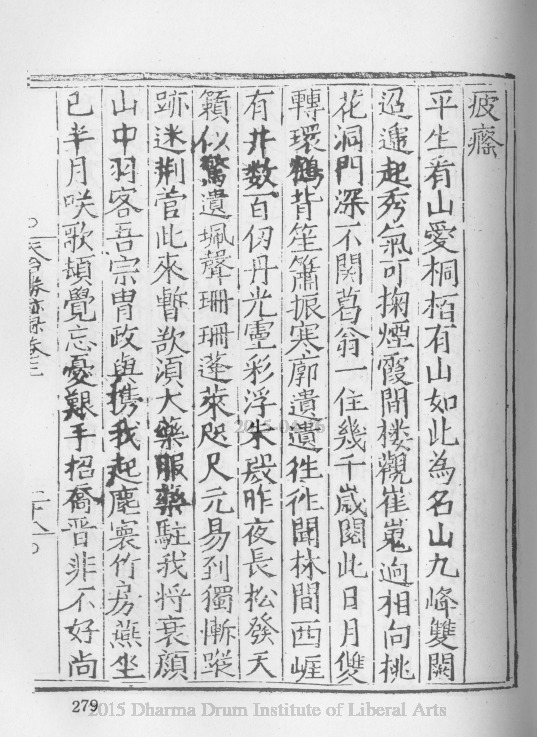 疲癃
平生看山愛桐栢有山如此為名山九峰雙闕
迢遞起秀氣可掬煙霞閒楼觀崔嵬逈相向桃
花洞門深不関葛翁一住幾千歲閱此日月雙
轉環鶴背笙簫振寒廓遺遺徃徃聞林間西崕
有井数百仞丹光霊彩浮朱殷昨夜長松發天
籟似驚遺珮聲珊珊蓬萊咫尺元易到獨慚蹤
跡迷荆菅此來暫欲湏大藥服藥駐我将衰顔
山中羽客吾宗冑政與携我起塵寰竹房燕坐
已半月咲歌頓覺忘憂艱手招喬晋非不好尚
天台勝蹟録卷三
二十八
279
2015 Dharma Drum Institute of Liberal Arts